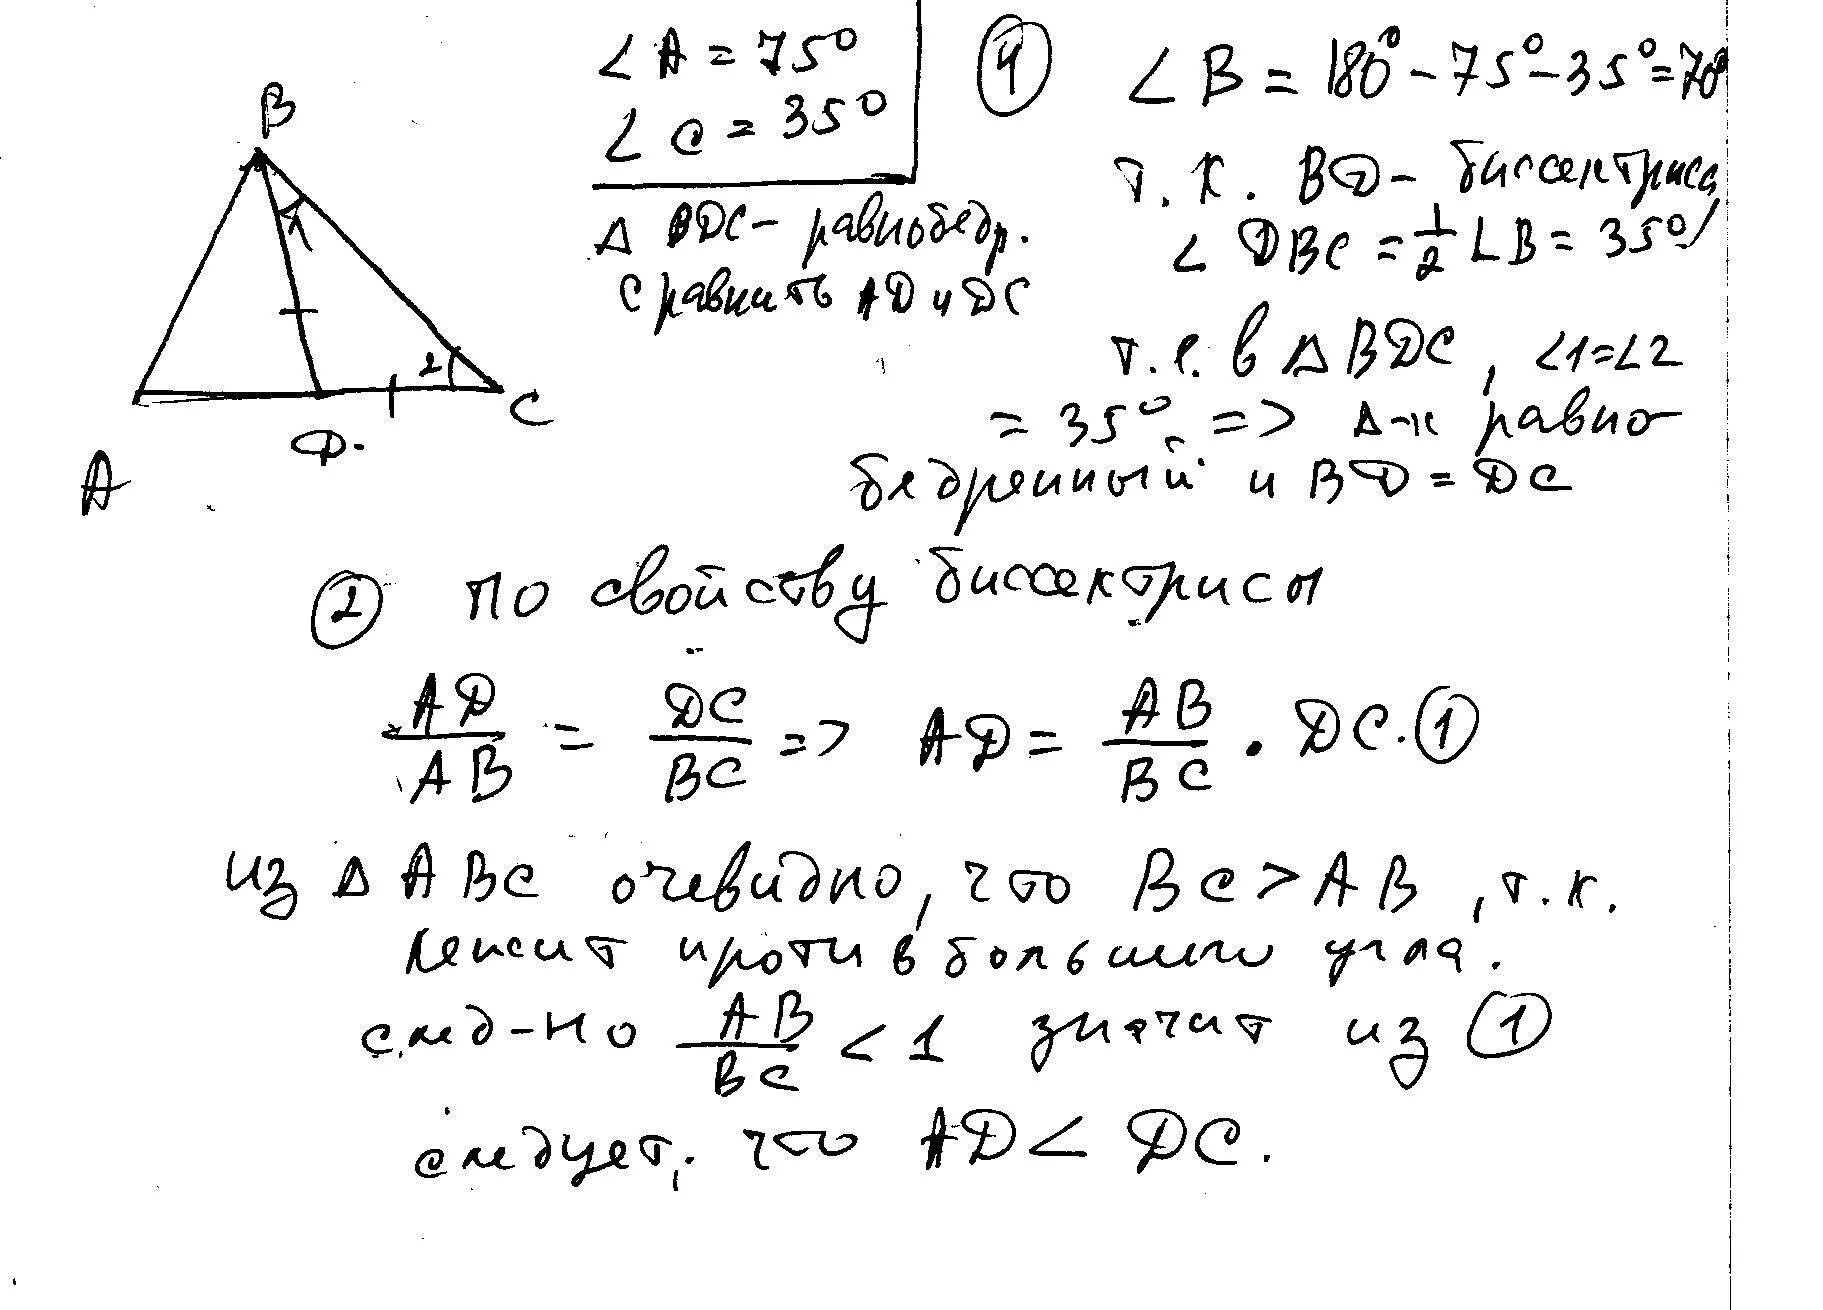 B
A
D.
C
1
2
∠A = 75°
∠C = 35°
Δ BDC – равнобедр.
сравнить AD и DC
① ∠B = 180° – 75° – 35° = 70°
т. к. BD – биссектриса
∠DBC = 1/2 ∠B = 35°
т.е. в Δ BDC, ∠1=∠2
= 35° => Δ-к равно-
бедренный и BD = DC
② по свойству биссектрисы
AD/AB = DC/BC => AD = AB/BC · DC. ①
из Δ ABC очевидно, что BC > AB, т.к.
лежит против большего угла.
след-но AB/BC < 1 значит из ①
следует, что AD < DC.